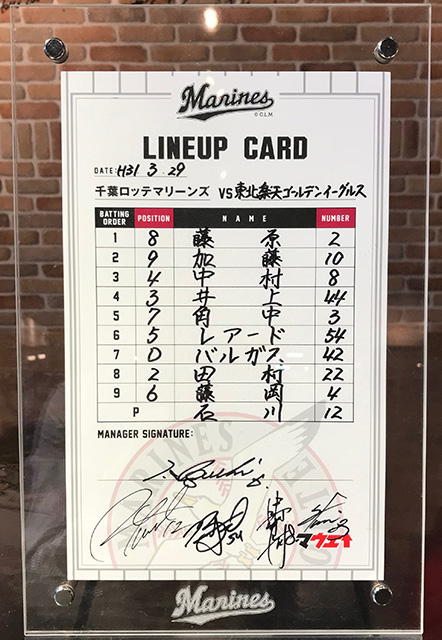 Marines
© C.L.M.
LINEUP CARD
DATE: H31 3. 29
千葉ロッテマリーンズ VS 東北楽天ゴールデンイーグルス
BATTING ORDER POSITION NAME NUMBER
1 8 藤原 2
2 9 加藤 10
3 4 中村 8
4 3 井上 44
5 7 角中 3
6 5 レアード 54
7 0 バルガス 42
8 2 田村 22
9 6 藤岡 4
P 石川 12
MANAGER SIGNATURE:
MARINES
マウエ↑
Marines